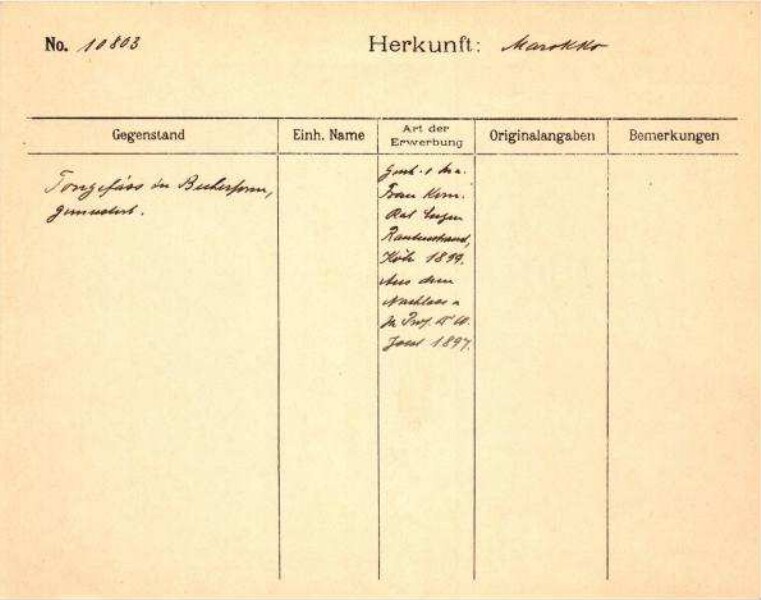 No. 10803 Herkunft: Marokko
Gegenstand Einh. Name Art der Erwerbung Originalangaben Bemerkungen
Tongefäss in Becherform,
gemustert.
Frau Kom.
Rat Eugen
Rautenstrauch,
Köln 1899.
Aus dem
Nachlass
Prof. Dr W.
Joest 1897.